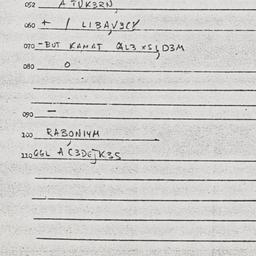 052 ATUK3RN,
060 + / LIBAV9CY
070 -BUT KAMAT QL3 XSI, D3M
080 O
090 –
100 RABONI4M
110 GGL A C3DEJK3S